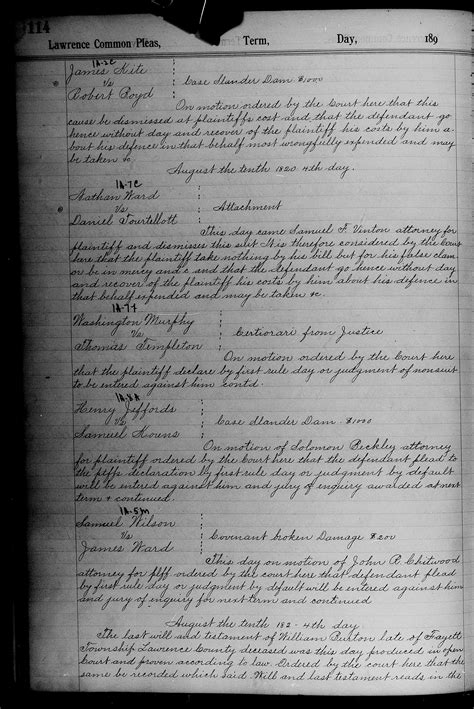 114
Lawrence Common Pleas, Term, Day, 189
1A-2C
James Kite
vs
Robert Boyd
Case Slander Dam $1000
On motion ordered by the Court here that this
cause be dismissed at plaintiffs cost and that the defendant go
hence without day and recover of the plaintiff his costs by him a-
bout his defence in that behalf most wrongfully expended and may
be taken &c
August the tenth 1820 4th day.
1A-7C
Nathan Ward
vs
Daniel Tourtellott
Attachment
This day came Samuel F. Vinton attorney for
plaintiff and dismisses this suit It is therefore considered by the Court
here that the plaintiff take nothing by his bill but for his false clam
or be in mercy and c and that the defendant go hence without day
and recover of the plaintiff his costs by him about his defence in
that behalf expended and may be taken &c.
1A-74
Washington Murphy
vs
Thomas Templeton
Certiorari from Justice
On motion ordered by the Court here
that the plaintiff declare by first rule day or judgment of nonsuit
to be entered against him contd.
1A-8A
Henry Jeffords
vs
Samuel Kouns
Case Slander Dam $1000
On motion of Solomon Beckley attorney
for plaintiff ordered by the Court here that the defendant plead to
the plffs declaration by first rule day or judgment by default
will be entered against him and jury of enquiry awarded at next
term & continued.
1A-5m
Samuel Wilson
vs
James Ward
Covenant broken Damage $200
This day on motion of John R. Chitwood
attorney for plff ordered by the court here that defendant plead
by first rule day or judgment by default will be entered against him
and jury of enquiry for next term and continued
August the tenth 182- 4th day.
The last will and testament of William Burton late of Fayett
Township Lawrence County deceased was this day produced in open
Court and proven according to law. Ordered by the court here that the
same be recorded which said Will and last testament reads in the